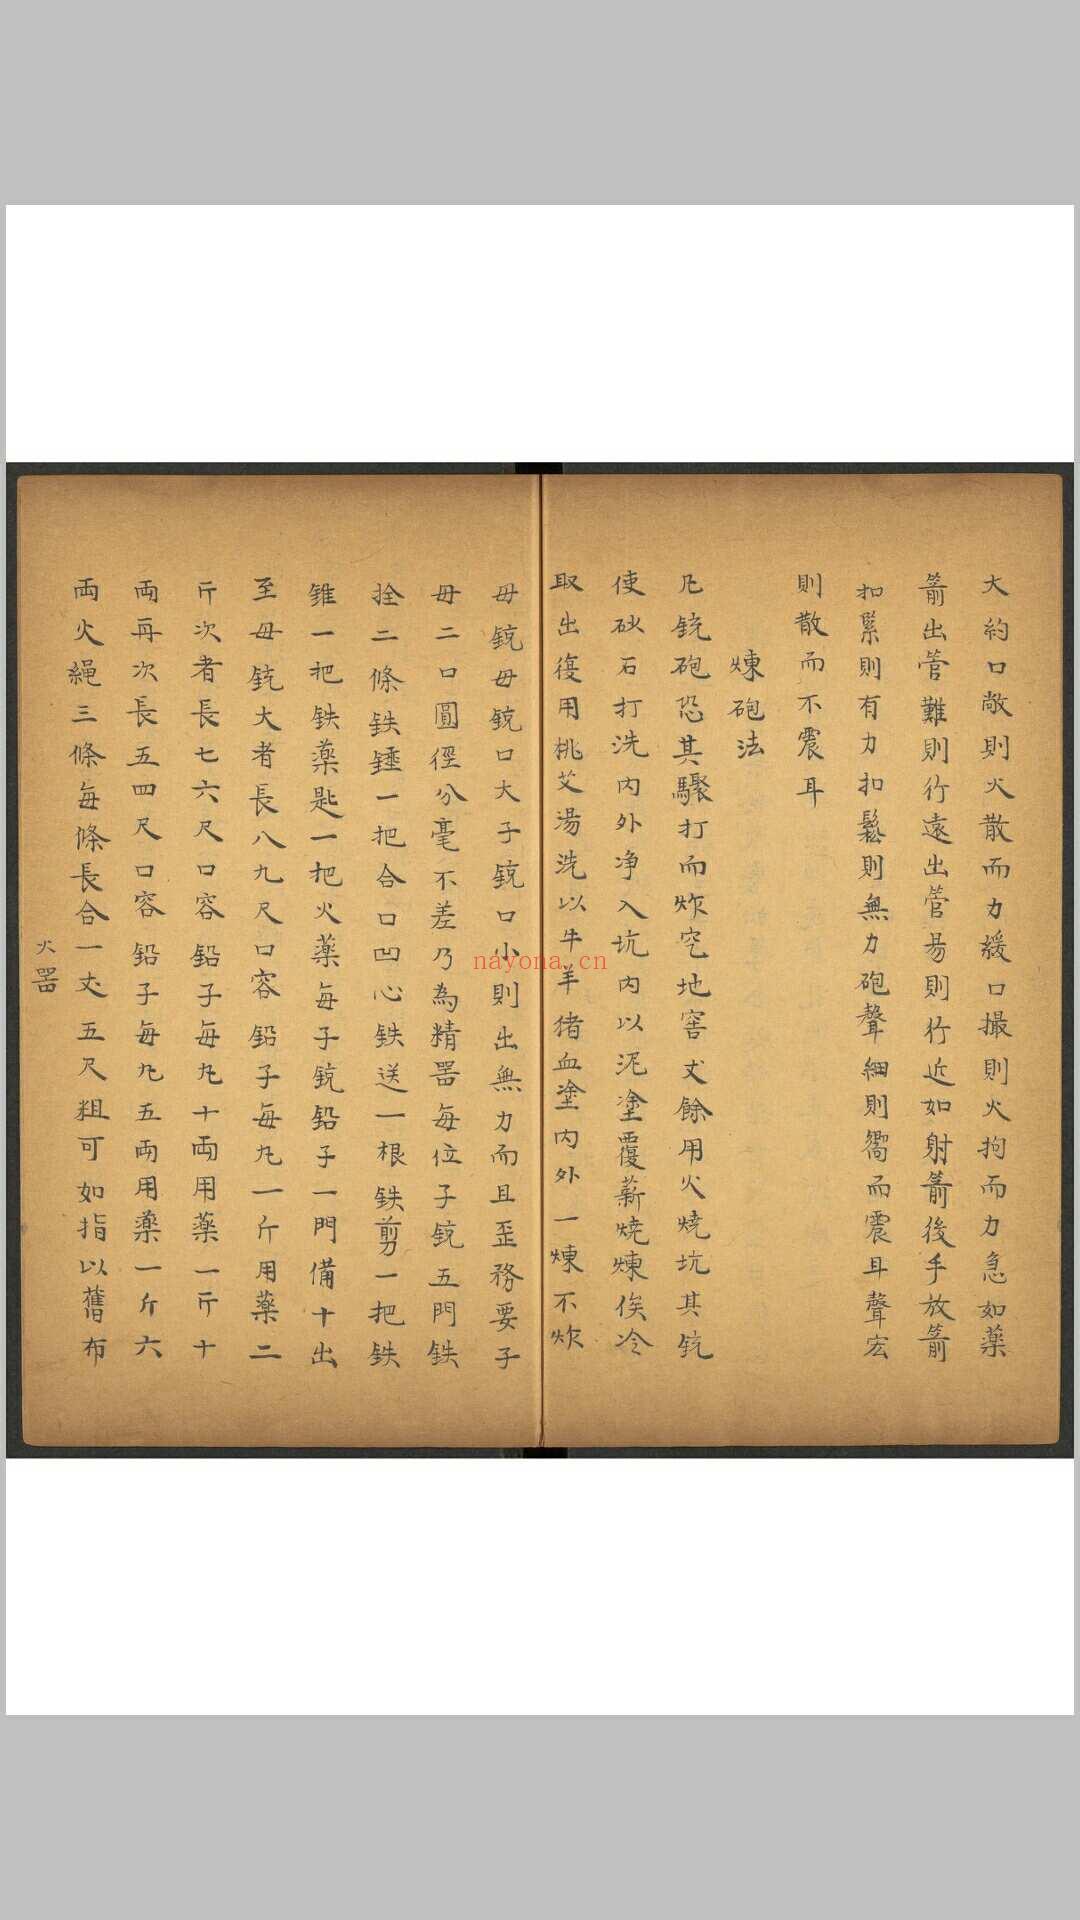 大約口敞則火散而力緩口撮則火拘而力急如藥
箭出管難則行遠出管易則行近如射箭後手放箭
扣緊則有力扣鬆則無力砲聲細則嚮而震耳聲宏
則散而不震耳
煉砲法
凡銃砲恐其驟打而炸空地窖丈餘用火燒坑其銃
使砂石打洗內外净入坑內以泥塗覆薪燒煉俟冷
取出復用桃艾湯洗以牛羊猪血塗內外一煉不炸
母銃母銃口大子銃口小則出無力而且歪務要子
母二口圓徑分毫不差乃為精器每位子銃五門鉄
拴二條鉄錘一把合口凹心鉄送一根鉄剪一把鉄
錐一把鉄藥匙一把火藥每子銃鉛子一門備十出
至母銃大者長八九尺口容鉛子每九一斤用藥二
斤次者長七六尺口容鉛子每九十兩用藥一斤十
兩再次長五四尺口容鉛子每九五兩用藥一斤六
兩火繩三條每條長合一丈五尺粗可如指以舊布
火器
nayona.cn